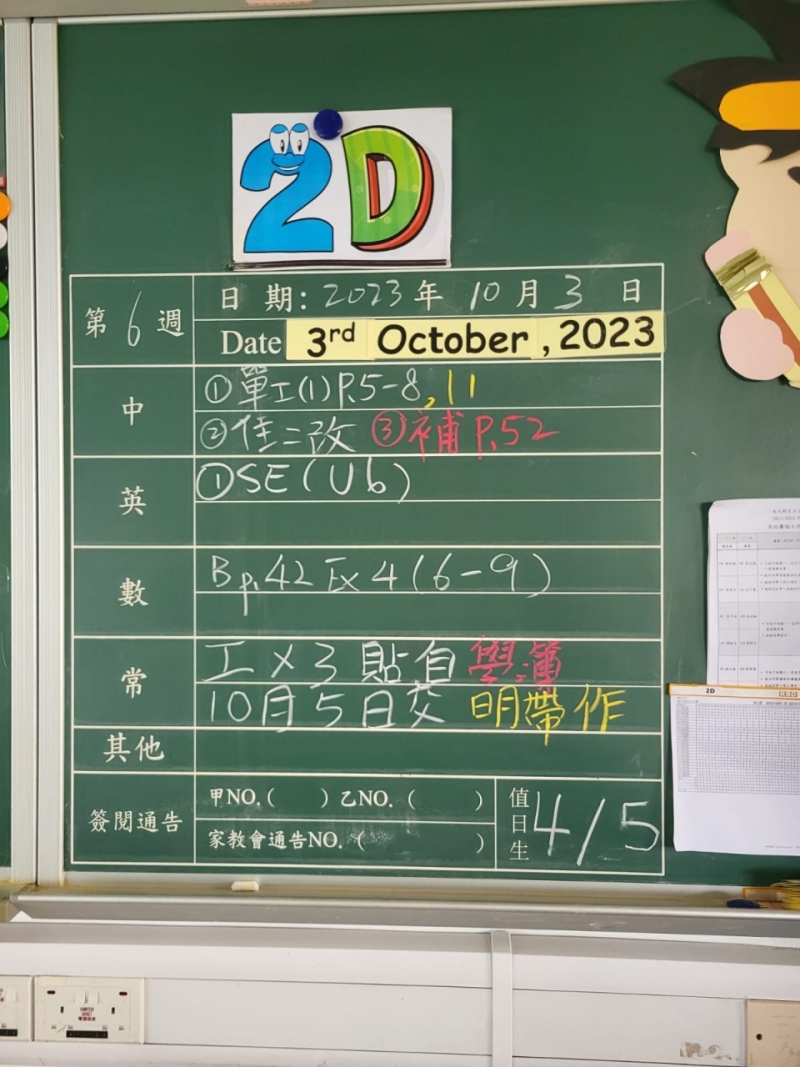 2D
第6週
日期:2023年10月3日
Date 3rd October, 2023
中
①單工(1)P.5-8,11
②佳二改 ③補P.52
英
①SE(U6)
數
Bp.42 Ex4(6-9)
常
工×3貼自學簿
10月5日交 明帶作
其他
簽閱通告
甲NO.( )乙NO.( )
家教會通告NO.( )
值日生 4/5
2D